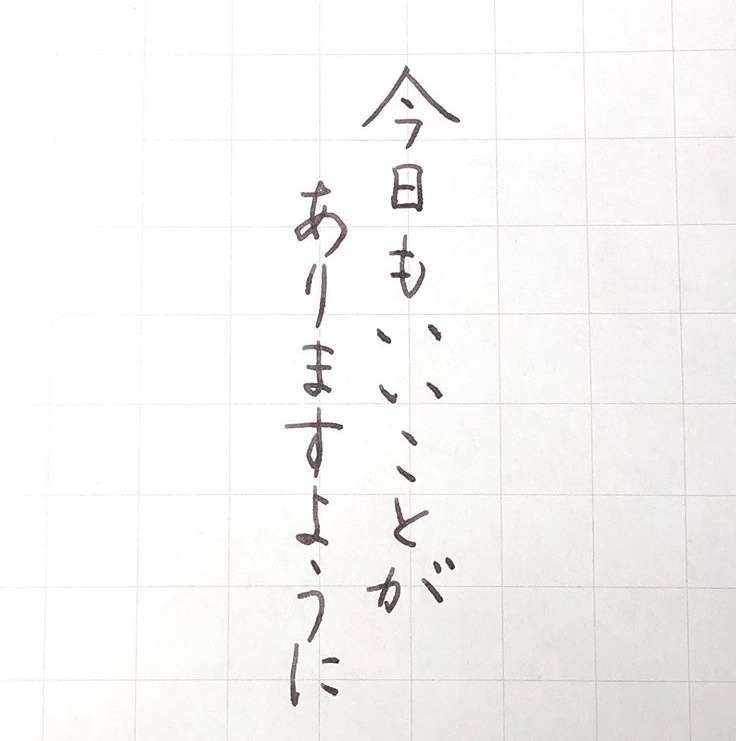 今日もいいことが
ありますように